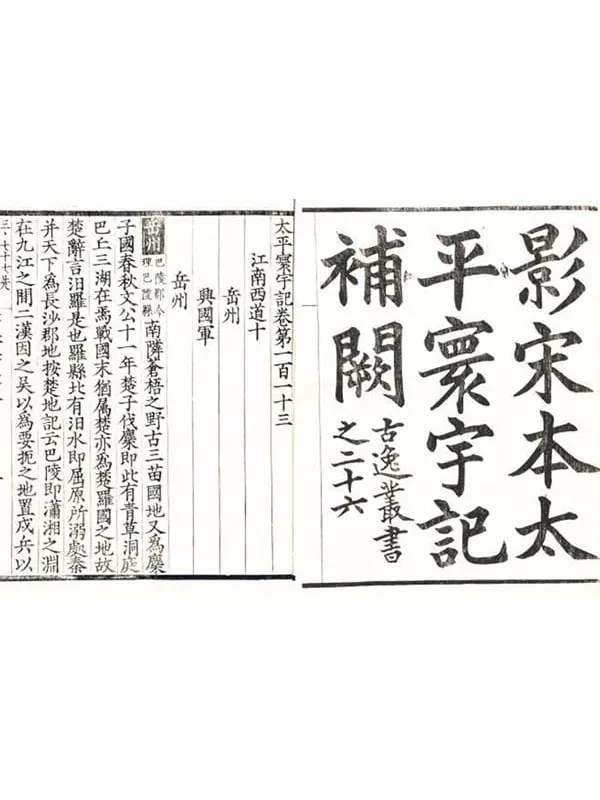 影宋本太
平寰宇記
補闕
古逸叢書
之二十六
太平寰宇記卷第一百一十三
江南西道十
岳州
興國軍
岳州
岳州巴陵郡今理巴陵縣南隣蒼梧之野古三苗國地又為麋
子國春秋文公十一年楚子伐麋即此有青草洞庭
巴丘三湖在焉戰國末猶属楚亦為楚羅國之地故
楚辭言汨羅是也羅縣北有汨水即屈原所溺處秦
并天下為長沙郡地按楚地記云巴陵即瀟湘之淵
在九江之間二漢因之吳以為要扼之地置戍兵以